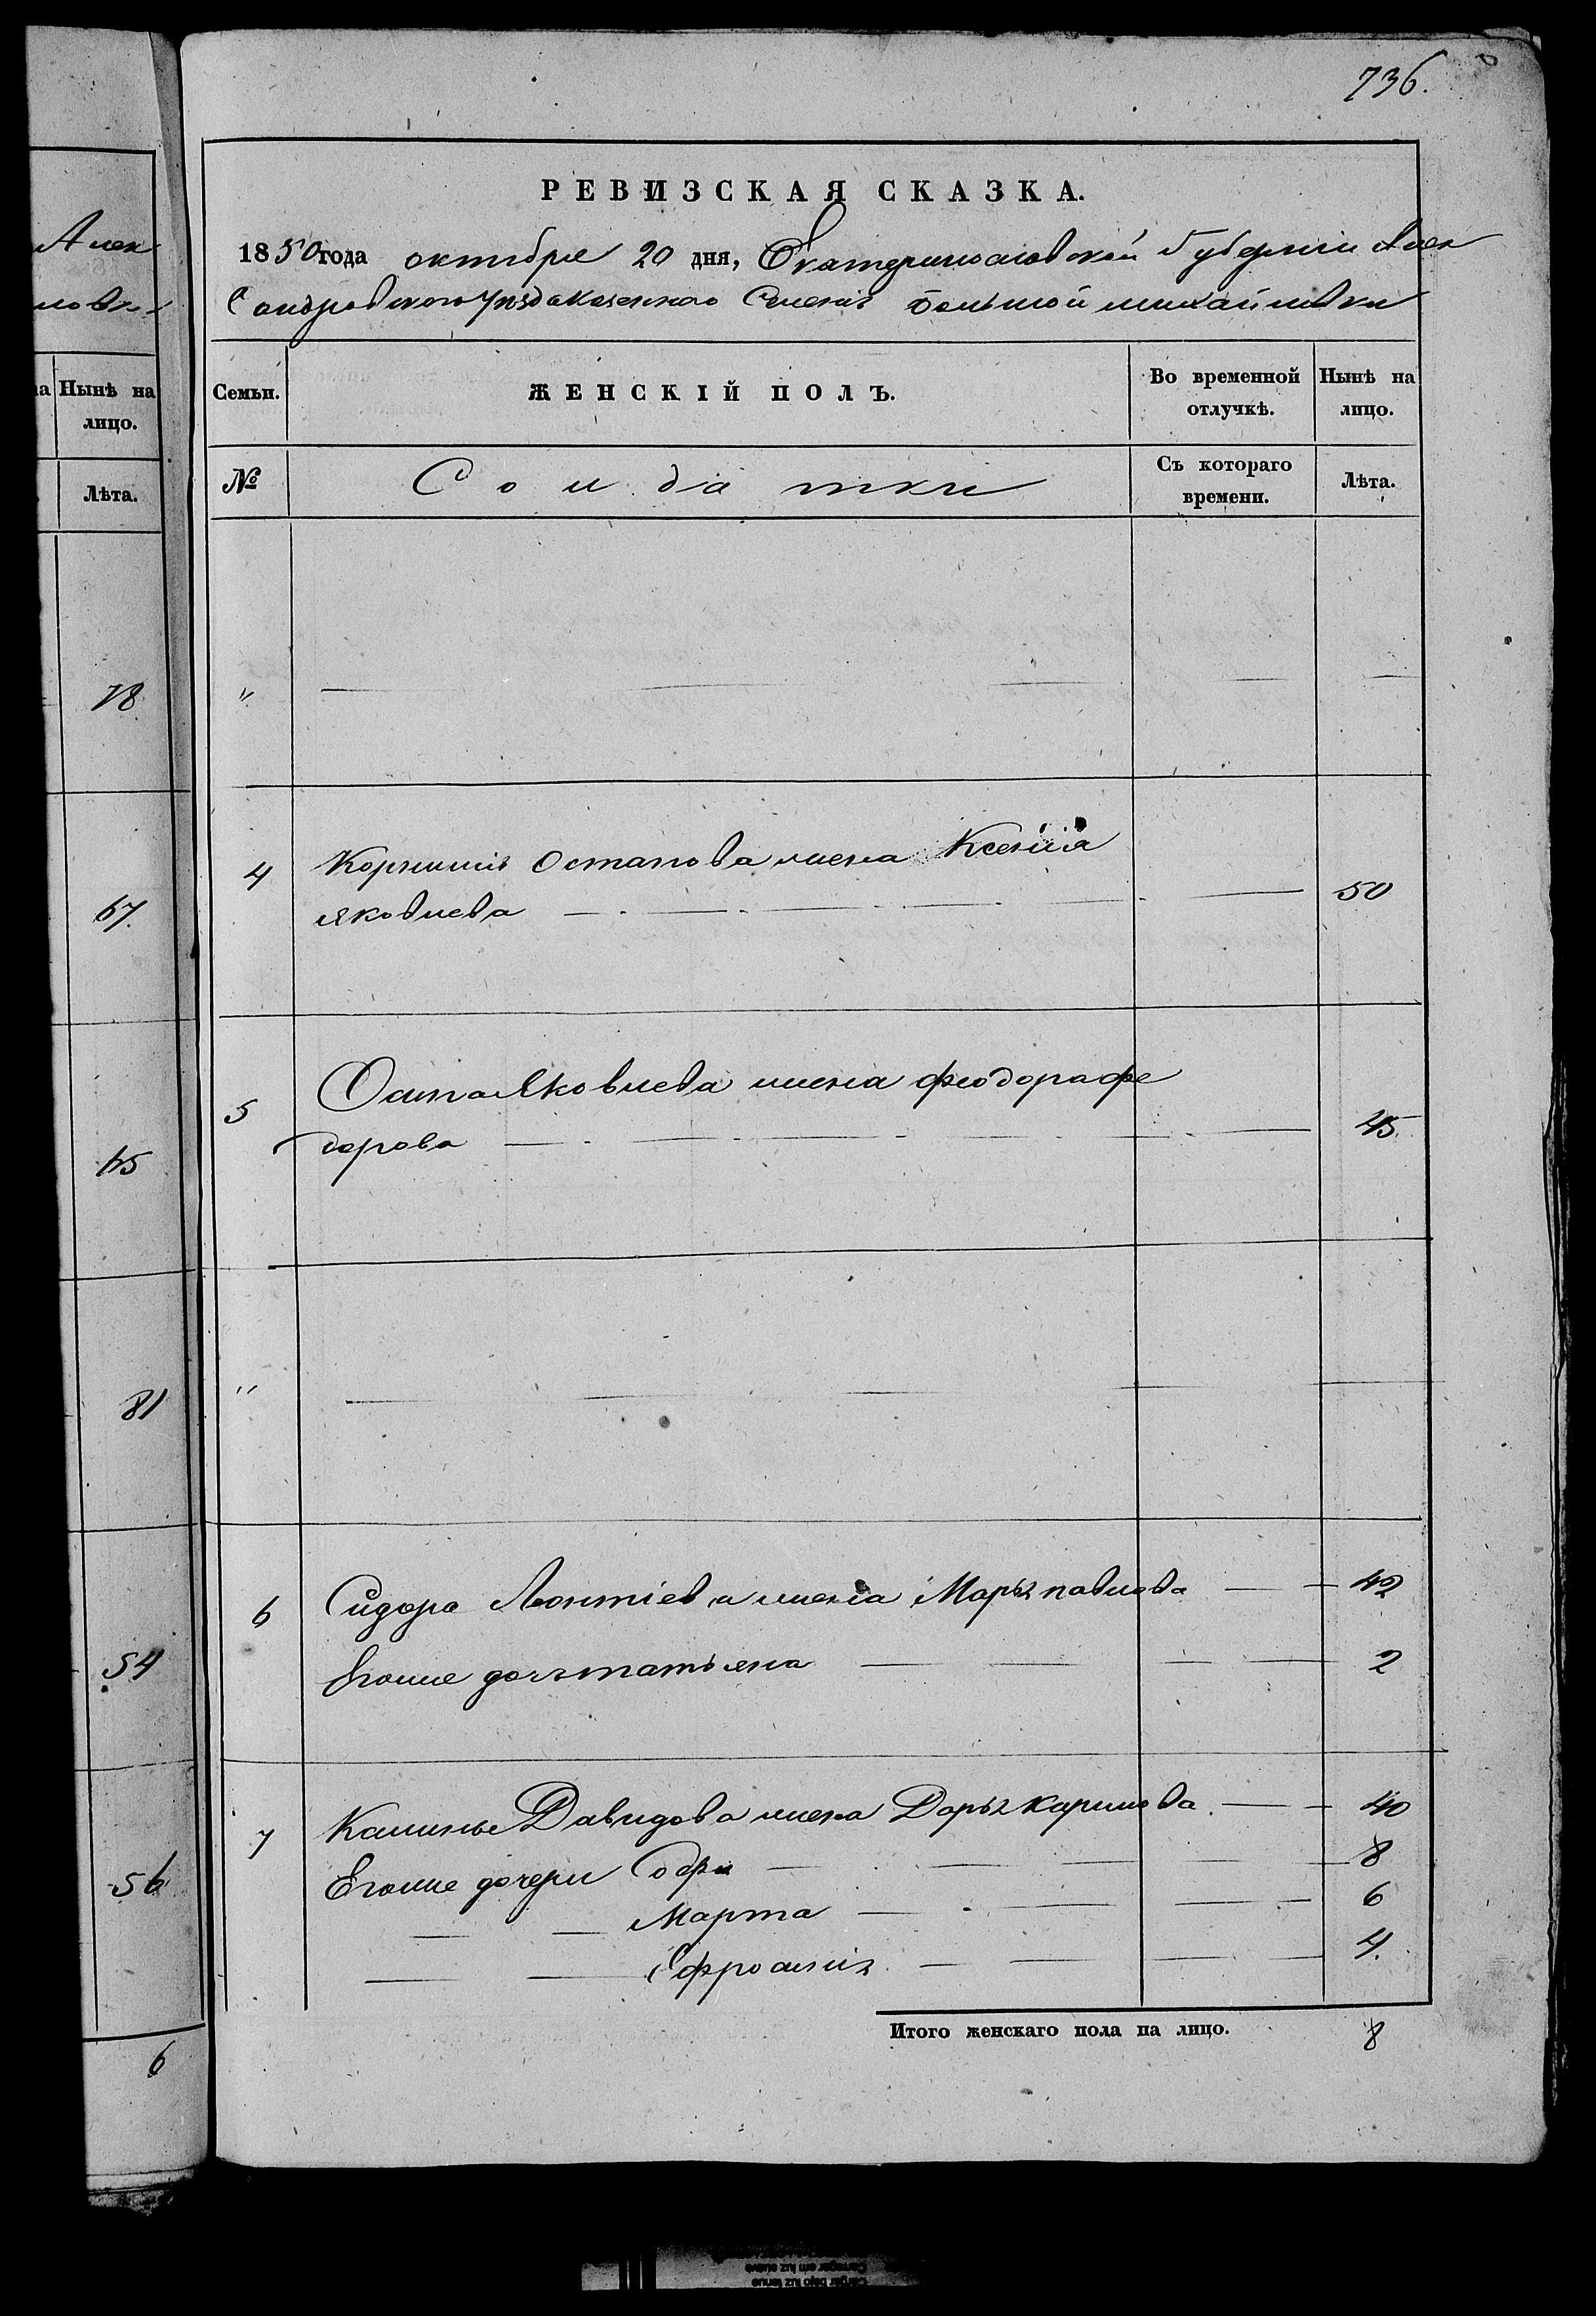 Алек
ловк
на Нынѣ на
лицо.
Лѣта.
78
67.
65
81
54
56
6
736.
РЕВИЗСКАЯ СКАЗКА.
1850 года октября 20 дня, Екатеринославской Губерніи Алек
Сандровского Уѣзда Казенного Селенія большой михайловки
Семьи. ЖЕНСКІЙ ПОЛЪ. Во временной отлучкѣ. Нынѣ на лицо.
№ Солдатки Съ котораго времени. Лѣта.
"
4 Корнилія Остапова жена Ксенія
яковлева 50
5 Осипа Яковлева жена феодора фе
дорова 45
"
6 Сидора Леонтіева жена Марья павлова 42
Егоже дочь татьяна 2
7 Калины Давидова жена Дарья карпова 40
Егоже дочери Софи 8
Марта 6
Ефросинія 4.
Итого женскаго пола на лицо. 8